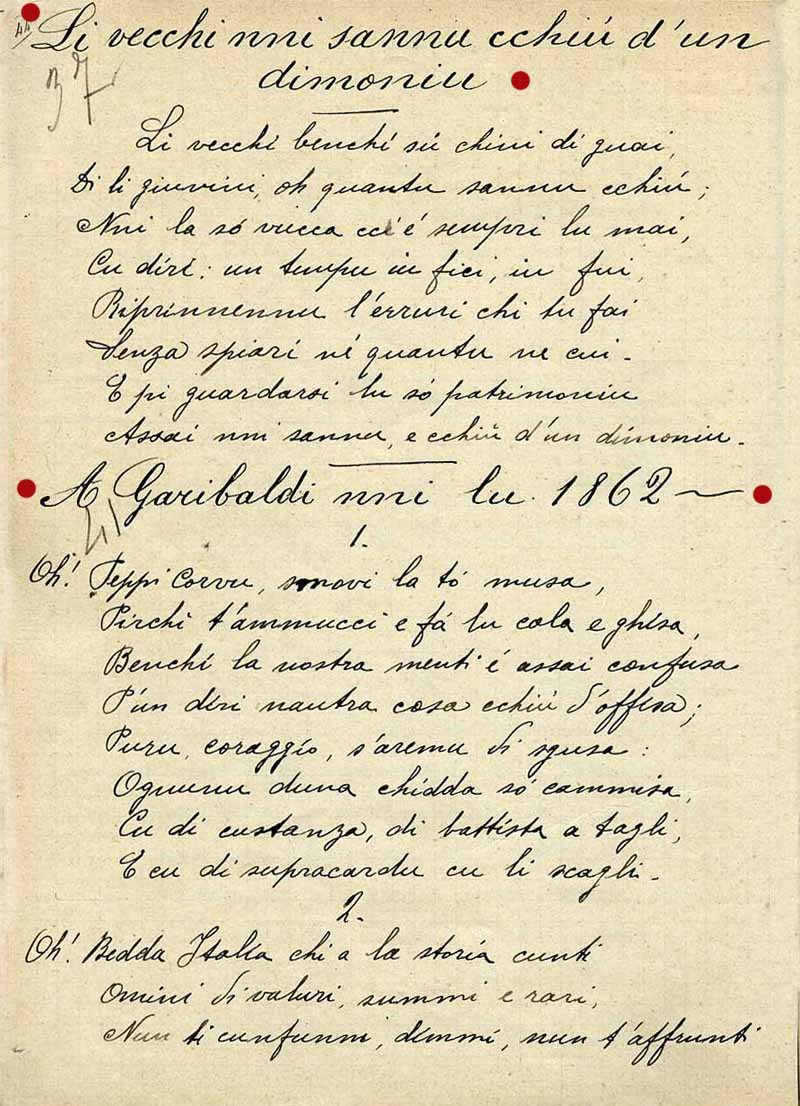 44
Li vecchi nni sannu cchiú d'un
dimoniu
37
Li vecchi benchí sú chini di guai,
Di li giuvini, oh quantu sannu cchiú;
Nni la só vucca cci é sempri lu mai,
Cu diri: un tempu iu fici, iu fui,
Riprinnennu l'erruri chi tu fai
Senza spiari né quantu ne cui.
E pi guardarsi lu só patrimoniu
Assai nni sannu, e cchiú d'un dimoniu.
A Garibaldi nni lu 1862
41
1.
Oh! Peppi Corvu, smovi la tó musa,
Pirchí t'ammucci e fá lu cola e ghisa,
Benchí la nostra menti é assai confusa
P'un diri nautra cosa cchiú d'offisa;
Puru, coraggio, s'aremu di sgusa:
Ognunu duna chidda só cammisa,
Cu di custanza, di battista a tagli,
E cu di supracardu cu li scagli.
2.
Oh! Bedda Italia chi a la storia cunti
Omini di valuri, summi e rari,
Nun ti cunfunni, dimmi, nun t'affrunti